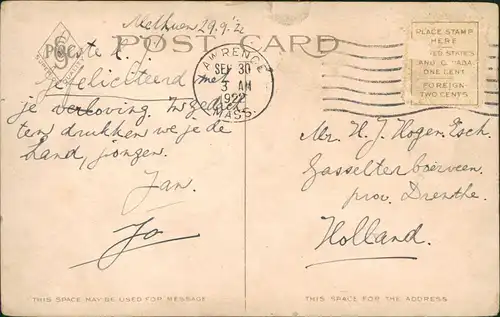 Methuen 29.9.'22
POST CARD
Beste
gefeliciteerd met
je verloving. In gedach-
ten drukken we je de
hand, jongen.
Jan.
Jo
LAWRENCE
SEP 30
3 AM
1922
MASS.
PLACE STAMP
HERE
ED STATES
AND CANADA
ONE CENT
FOREIGN
TWO CENTS
Mr. H. J. Hogen Esch.
Gasselterboerveen.
prov. Drenthe.
Holland.
THIS SPACE MAY BE USED FOR MESSAGE
THIS SPACE FOR THE ADDRESS